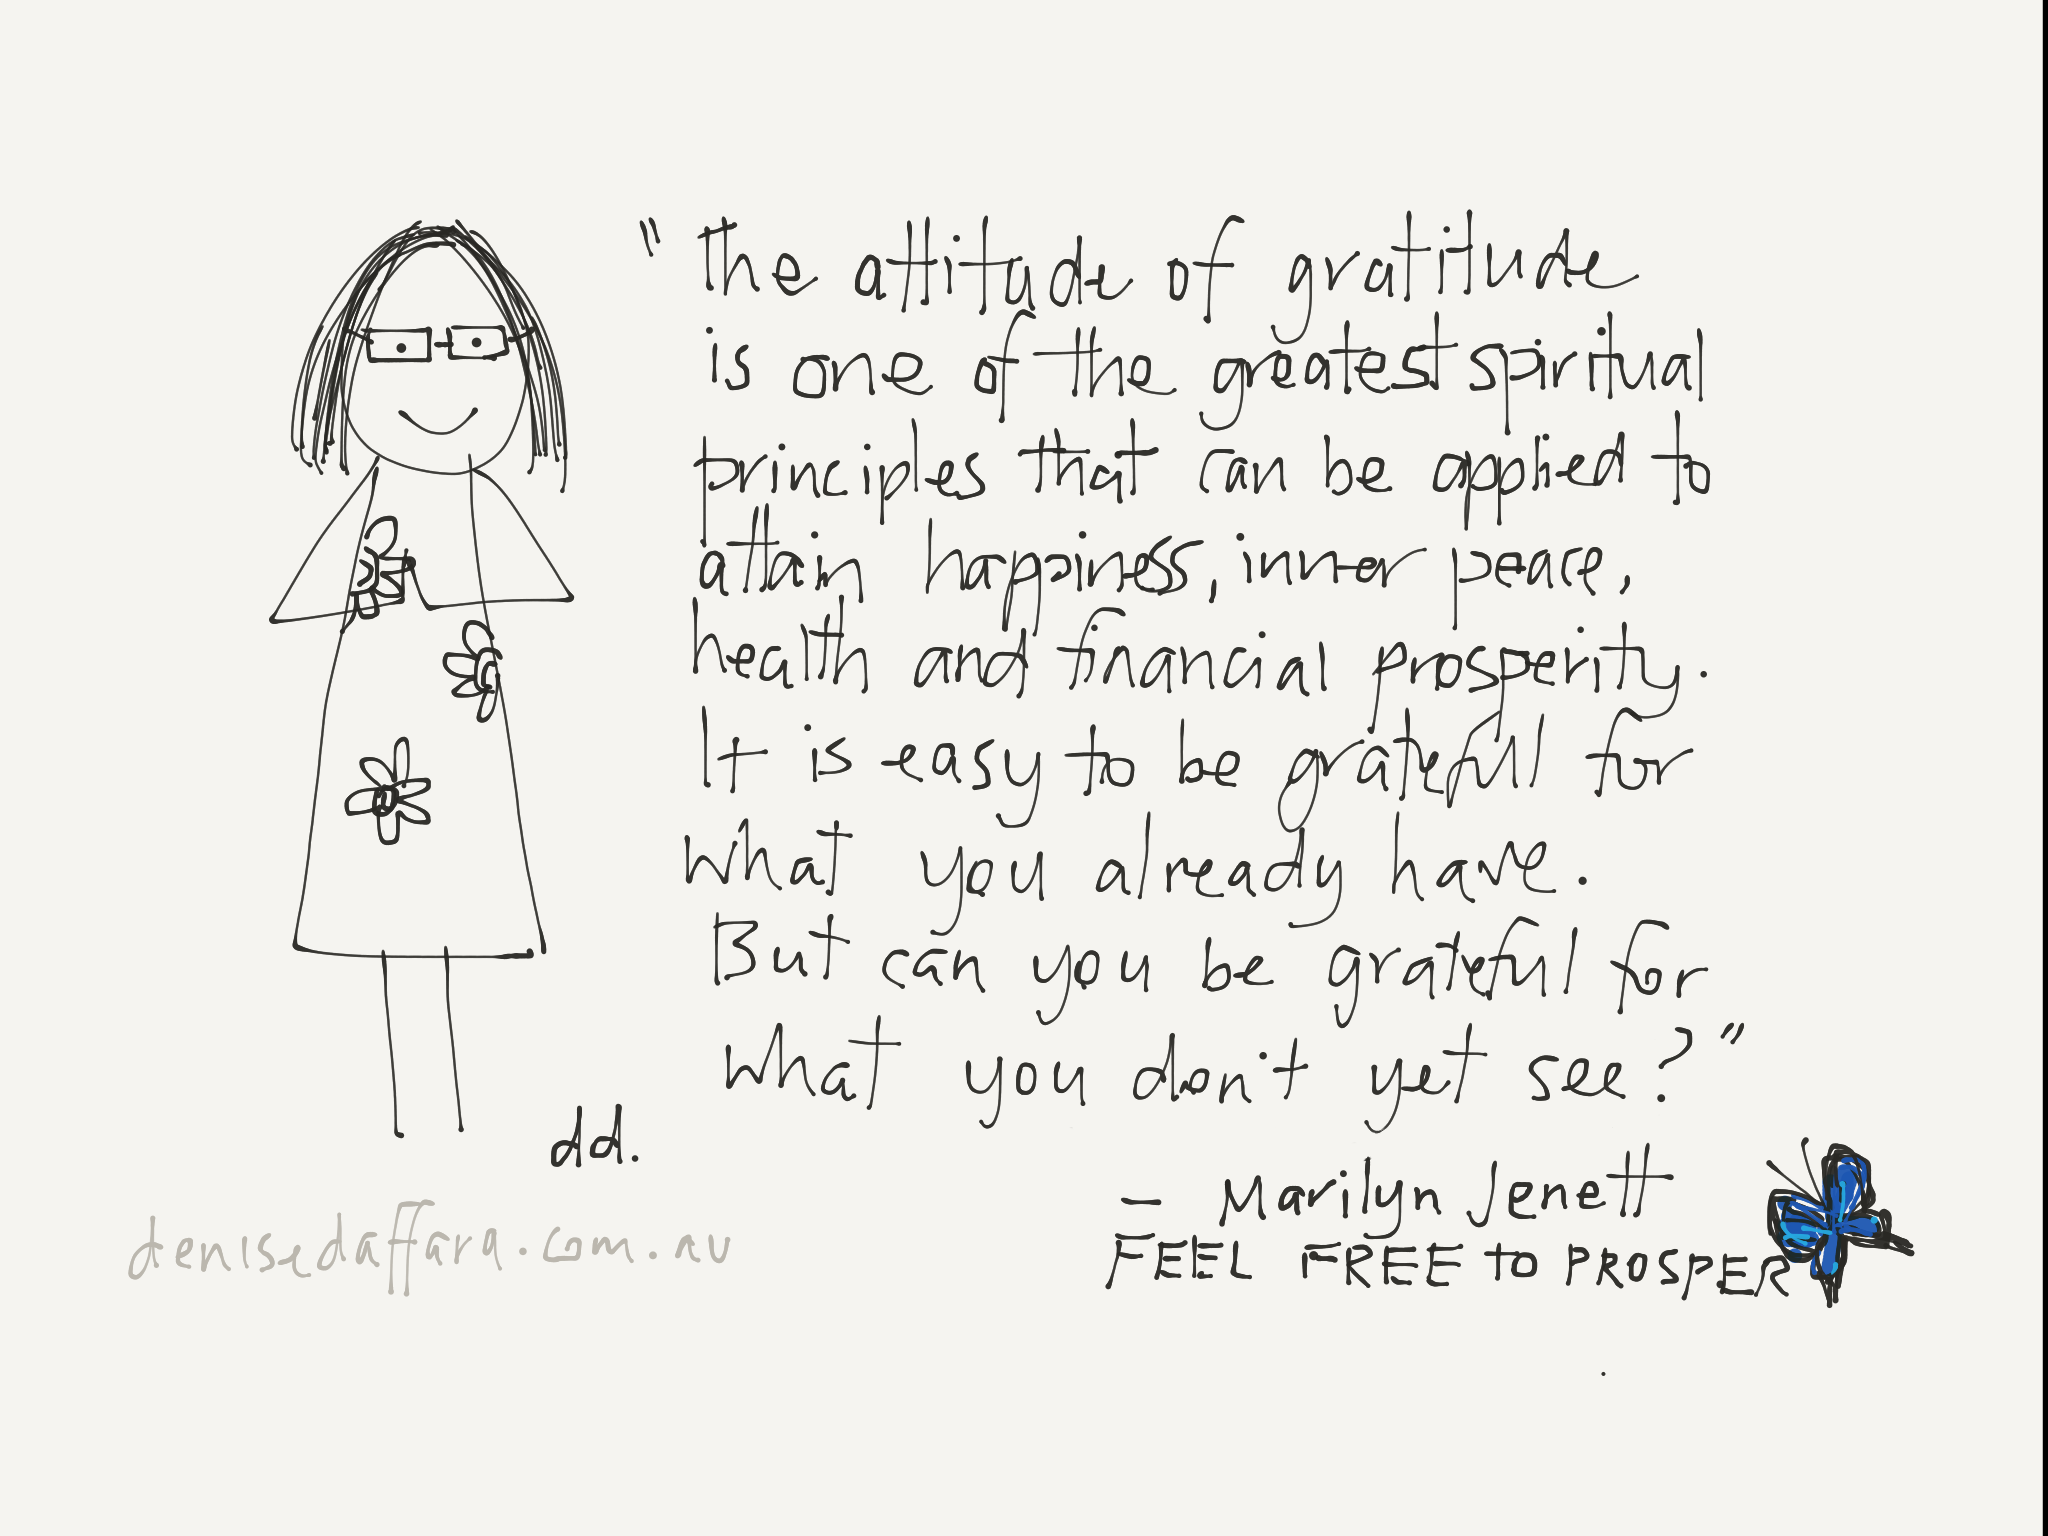 "The attitude of gratitude
is one of the greatest spiritual
principles that can be applied to
attain happiness, inner peace,
health and financial prosperity.
It is easy to be grateful for
what you already have.
But can you be grateful for
what you don't yet see?"
- Marilyn Jenett
FEEL FREE to PROSPER
dd.
denisedaffara.com.au